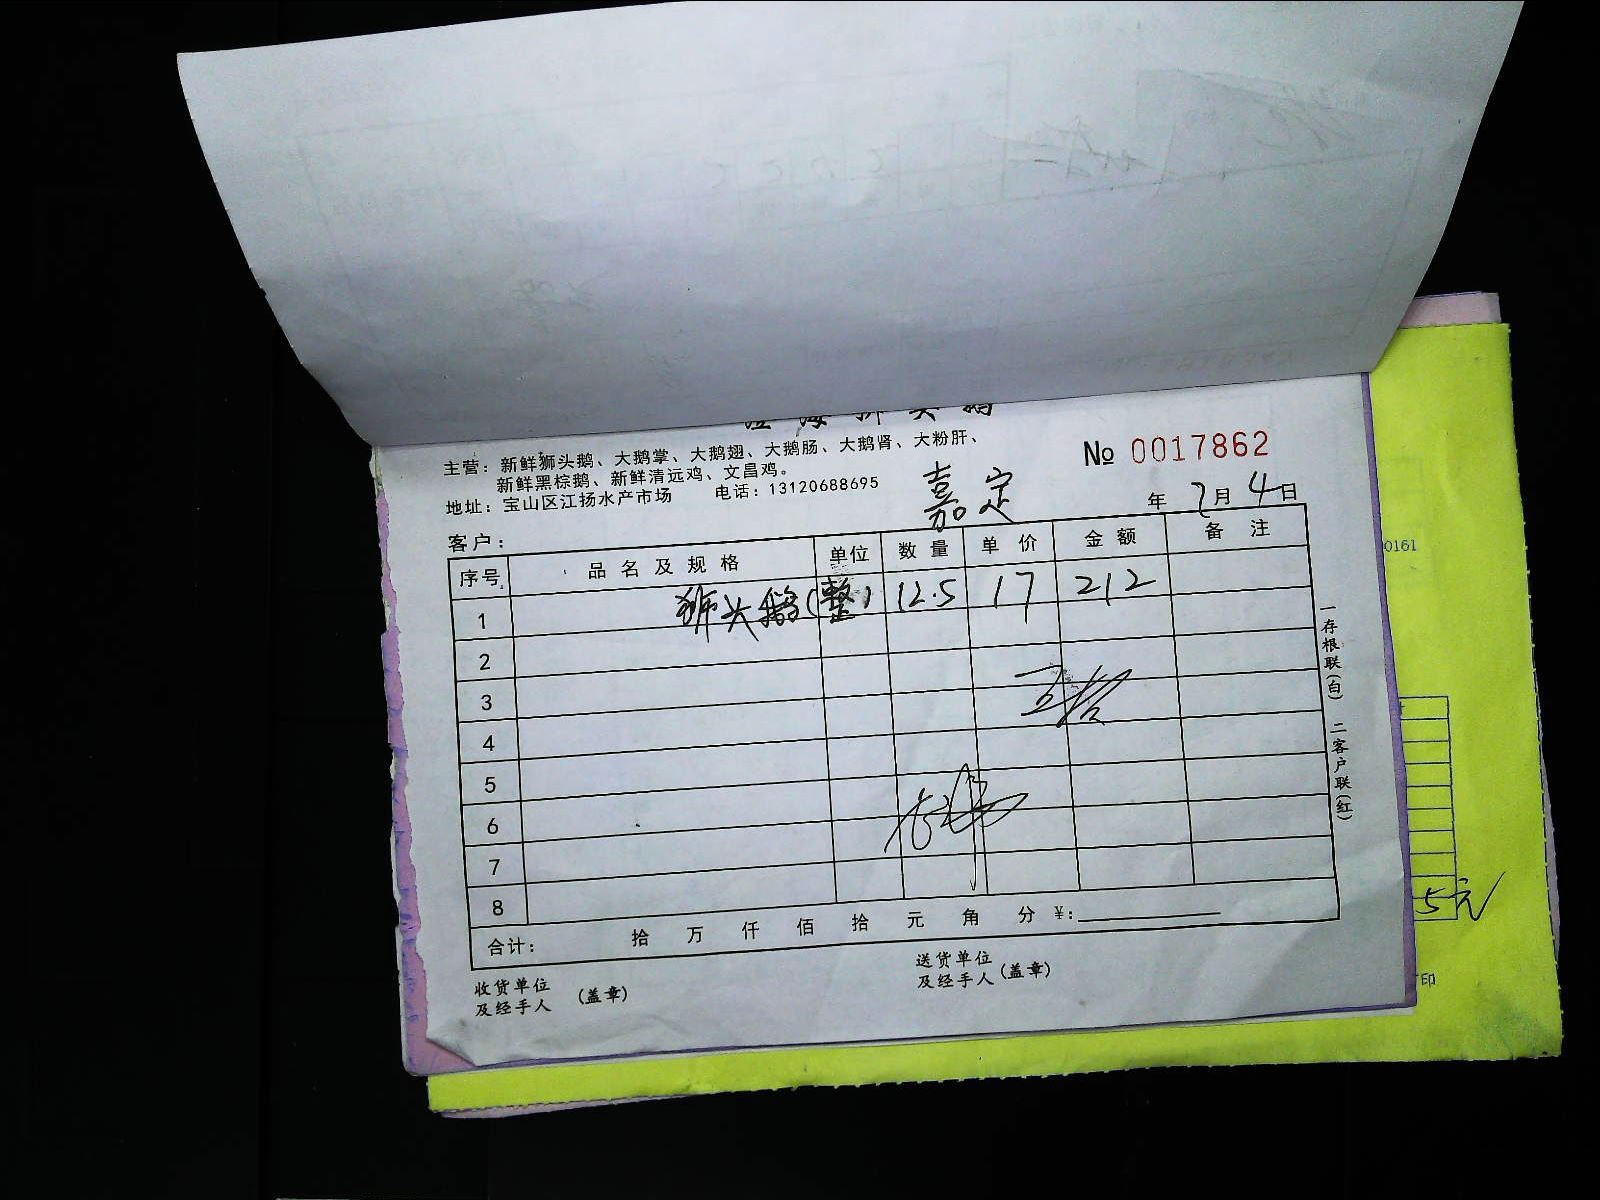 澄海狮头鹅
主营：新鲜狮头鹅、大鹅掌、大鹅翅、大鹅肠、大鹅肾、大粉肝、
新鲜黑棕鹅、新鲜清远鸡、文昌鸡。
地址：宝山区江扬水产市场 电话：13120688695
№ 0017862
嘉定
年 7月 4日
客户：
序号 品名及规格 单位 数量 单价 金额 备注
1 狮头鹅(整) 12.5 17 212
2
3
4
5
6
7
8
合计： 拾 万 仟 佰 拾 元 角 分 ¥:
收货单位
及经手人 (盖章)
送货单位
及经手人 (盖章)
一存根联(白) 二客户联(红)
0161
5元
印